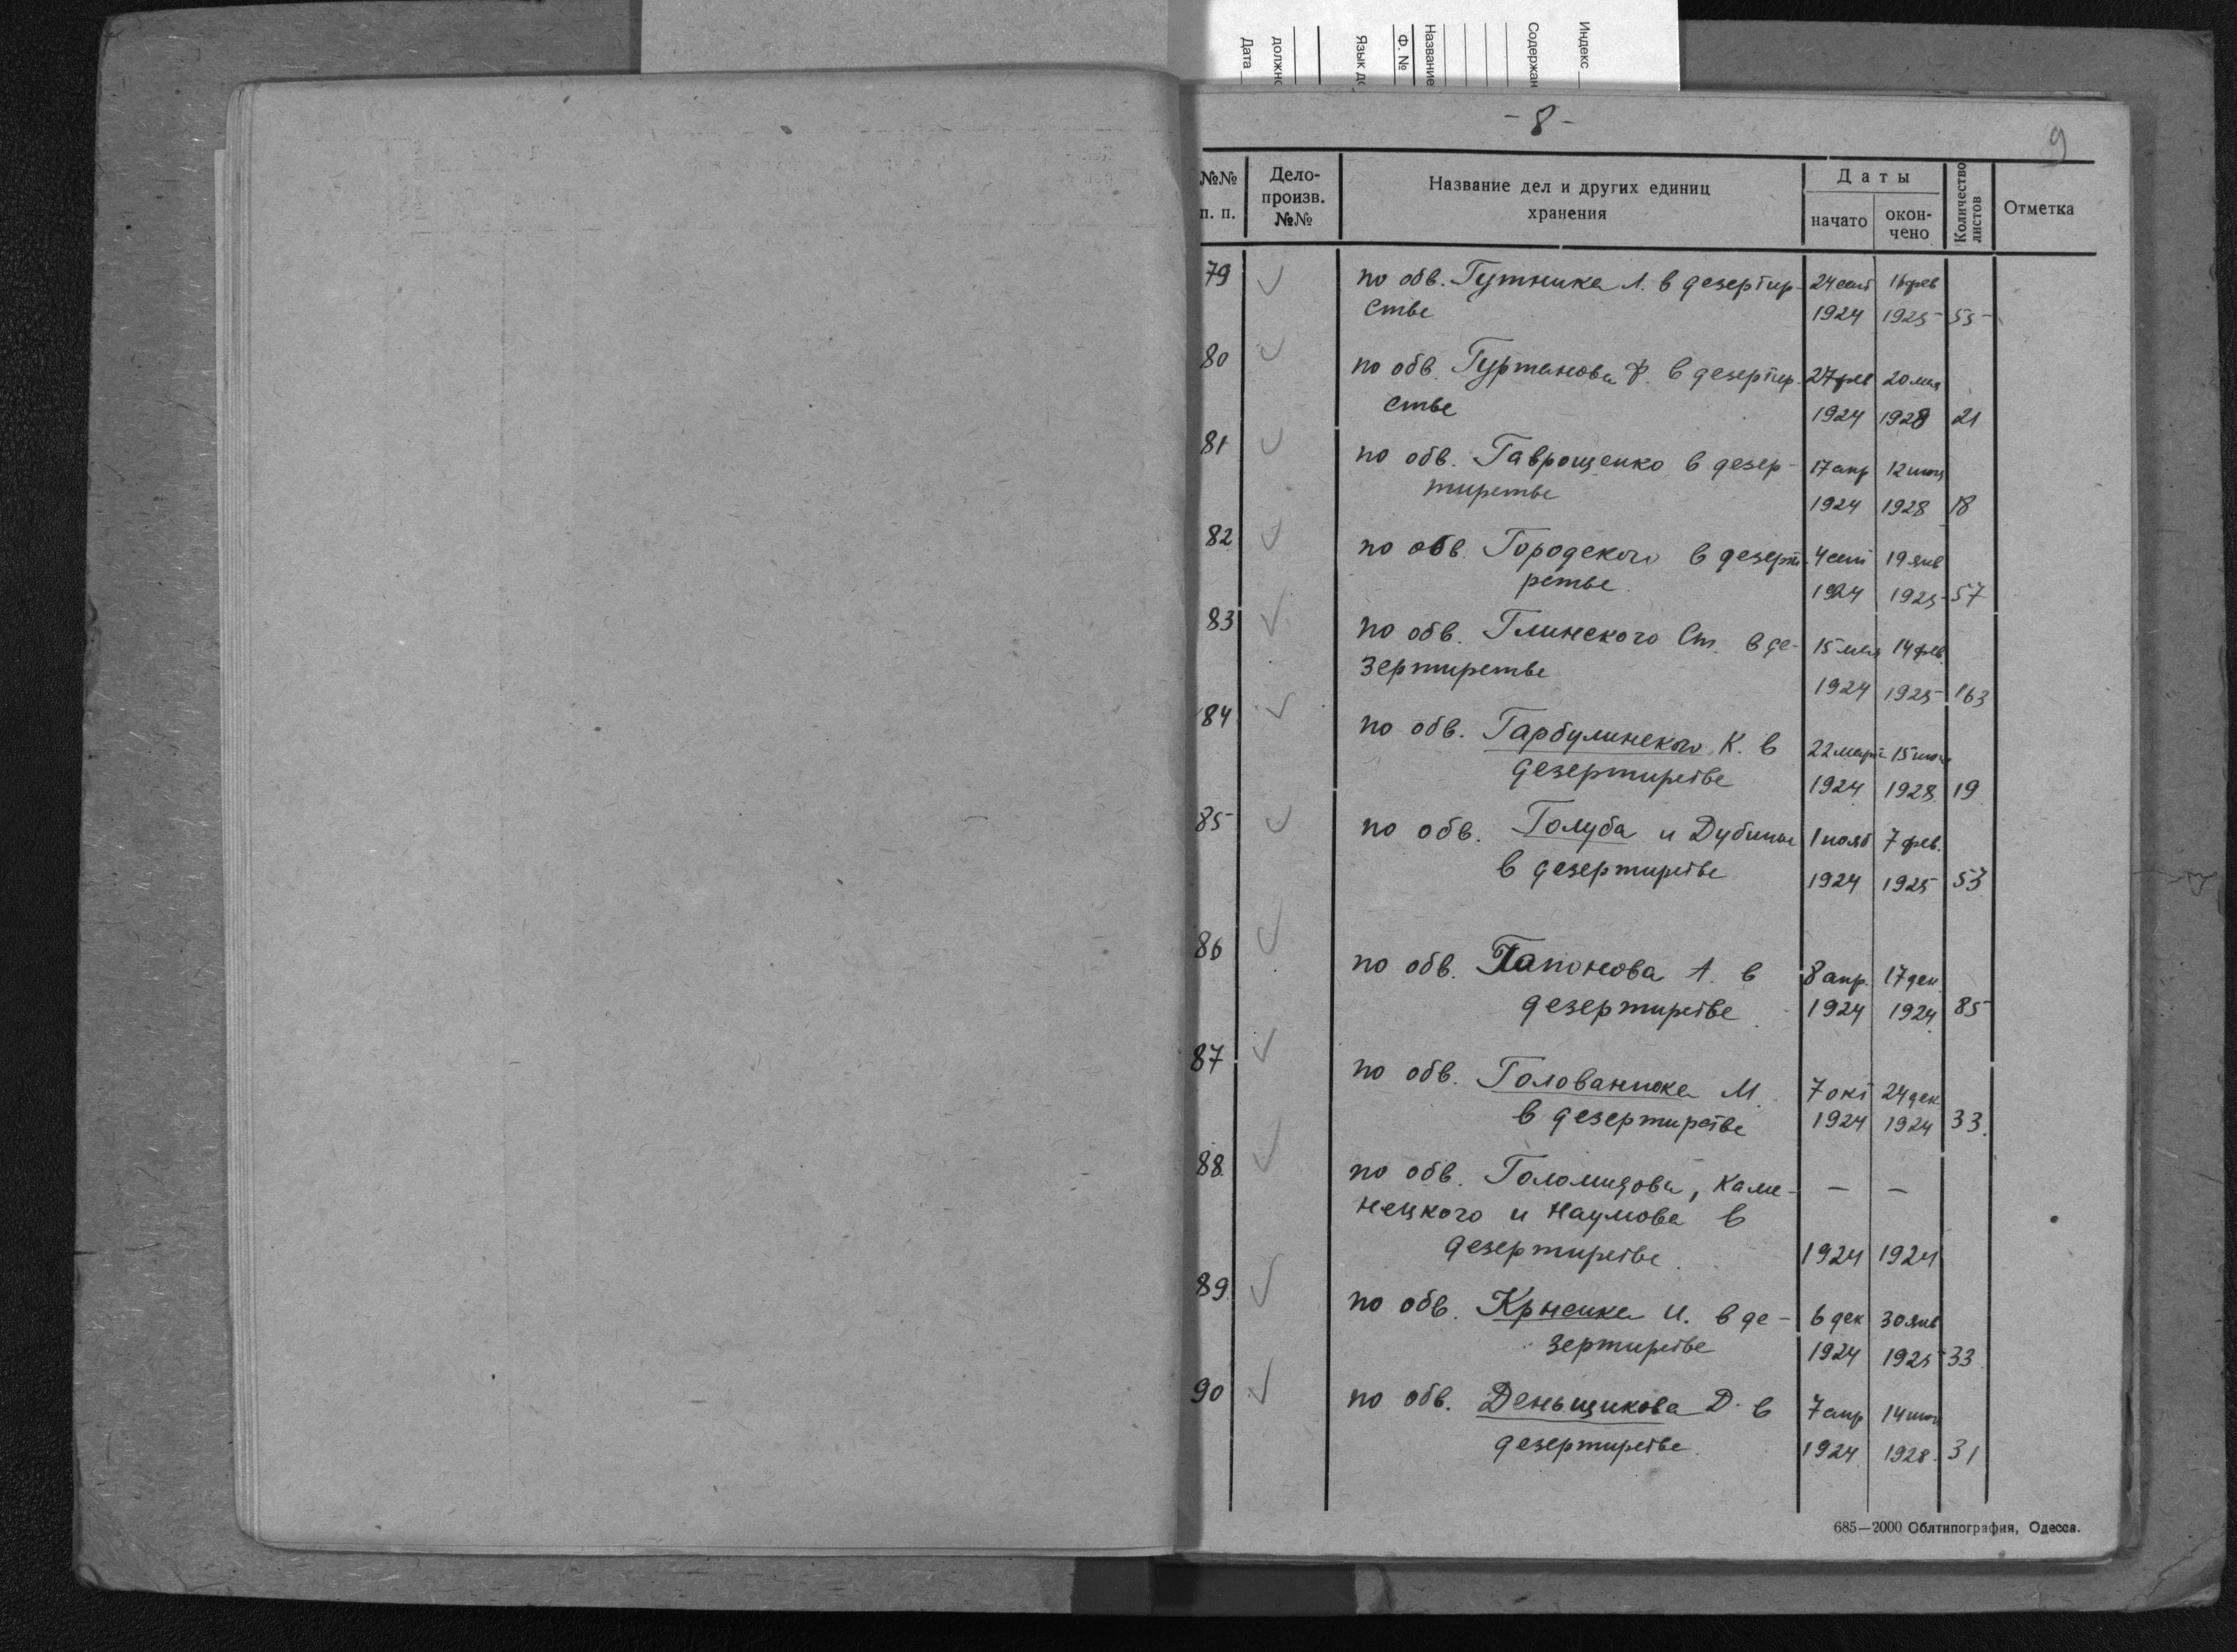 Индекс
Содержан
Название
Ф. №
Язык до
должно
Дата
- 8 -
9
№№ п. п.
Дело-произв. №№
Название дел и других единиц хранения
Даты
начато
окон-чено
Количество листов
Отметка
79 по обв. Гутника Л. в дезертир- 24 сент 16 фев
стве 1924 1925 55
80 по обв. Гуртанова Ф. в дезертир- 27 фев 20 мая
стве 1924 1928 21
81 по обв. Гаврощенко в дезер- 17 апр 12 июн
тирстве 1924 1928 18
82 по обв. Городского в дезерти- 4 сент 19 янв
рстве. 1924 1925 57
83 по обв. Глинского Ст. в де- 15 мая 14 фев.
зертирстве 1924 1925 163
84 по обв. Гарбулинского К. в 22 март 15 июн
дезертирстве 1924 1928 19
85 по обв. Голуба и Дубины 1 нояб 7 фев.
в дезертирстве 1924 1925 53
86 по обв. Гапонова А. в 8 апр. 17 дек
дезертирстве 1924 1924 85
87 по обв. Голованюка М. 7 окт 24 дек
в дезертирстве 1924 1924 33.
88. по обв. Голомидова, Каме- — —
нецкого и Наумова в
дезертирстве. 1924 1924
89. по обв. Крысика И. в де- 6 дек 30 янв
зертирстве 1924 1925 33
90 по обв. Деньщикова Д. в 7 апр 14 июн
дезертирстве. 1924 1928. 31
685—2000 Облтипография, Одесса.